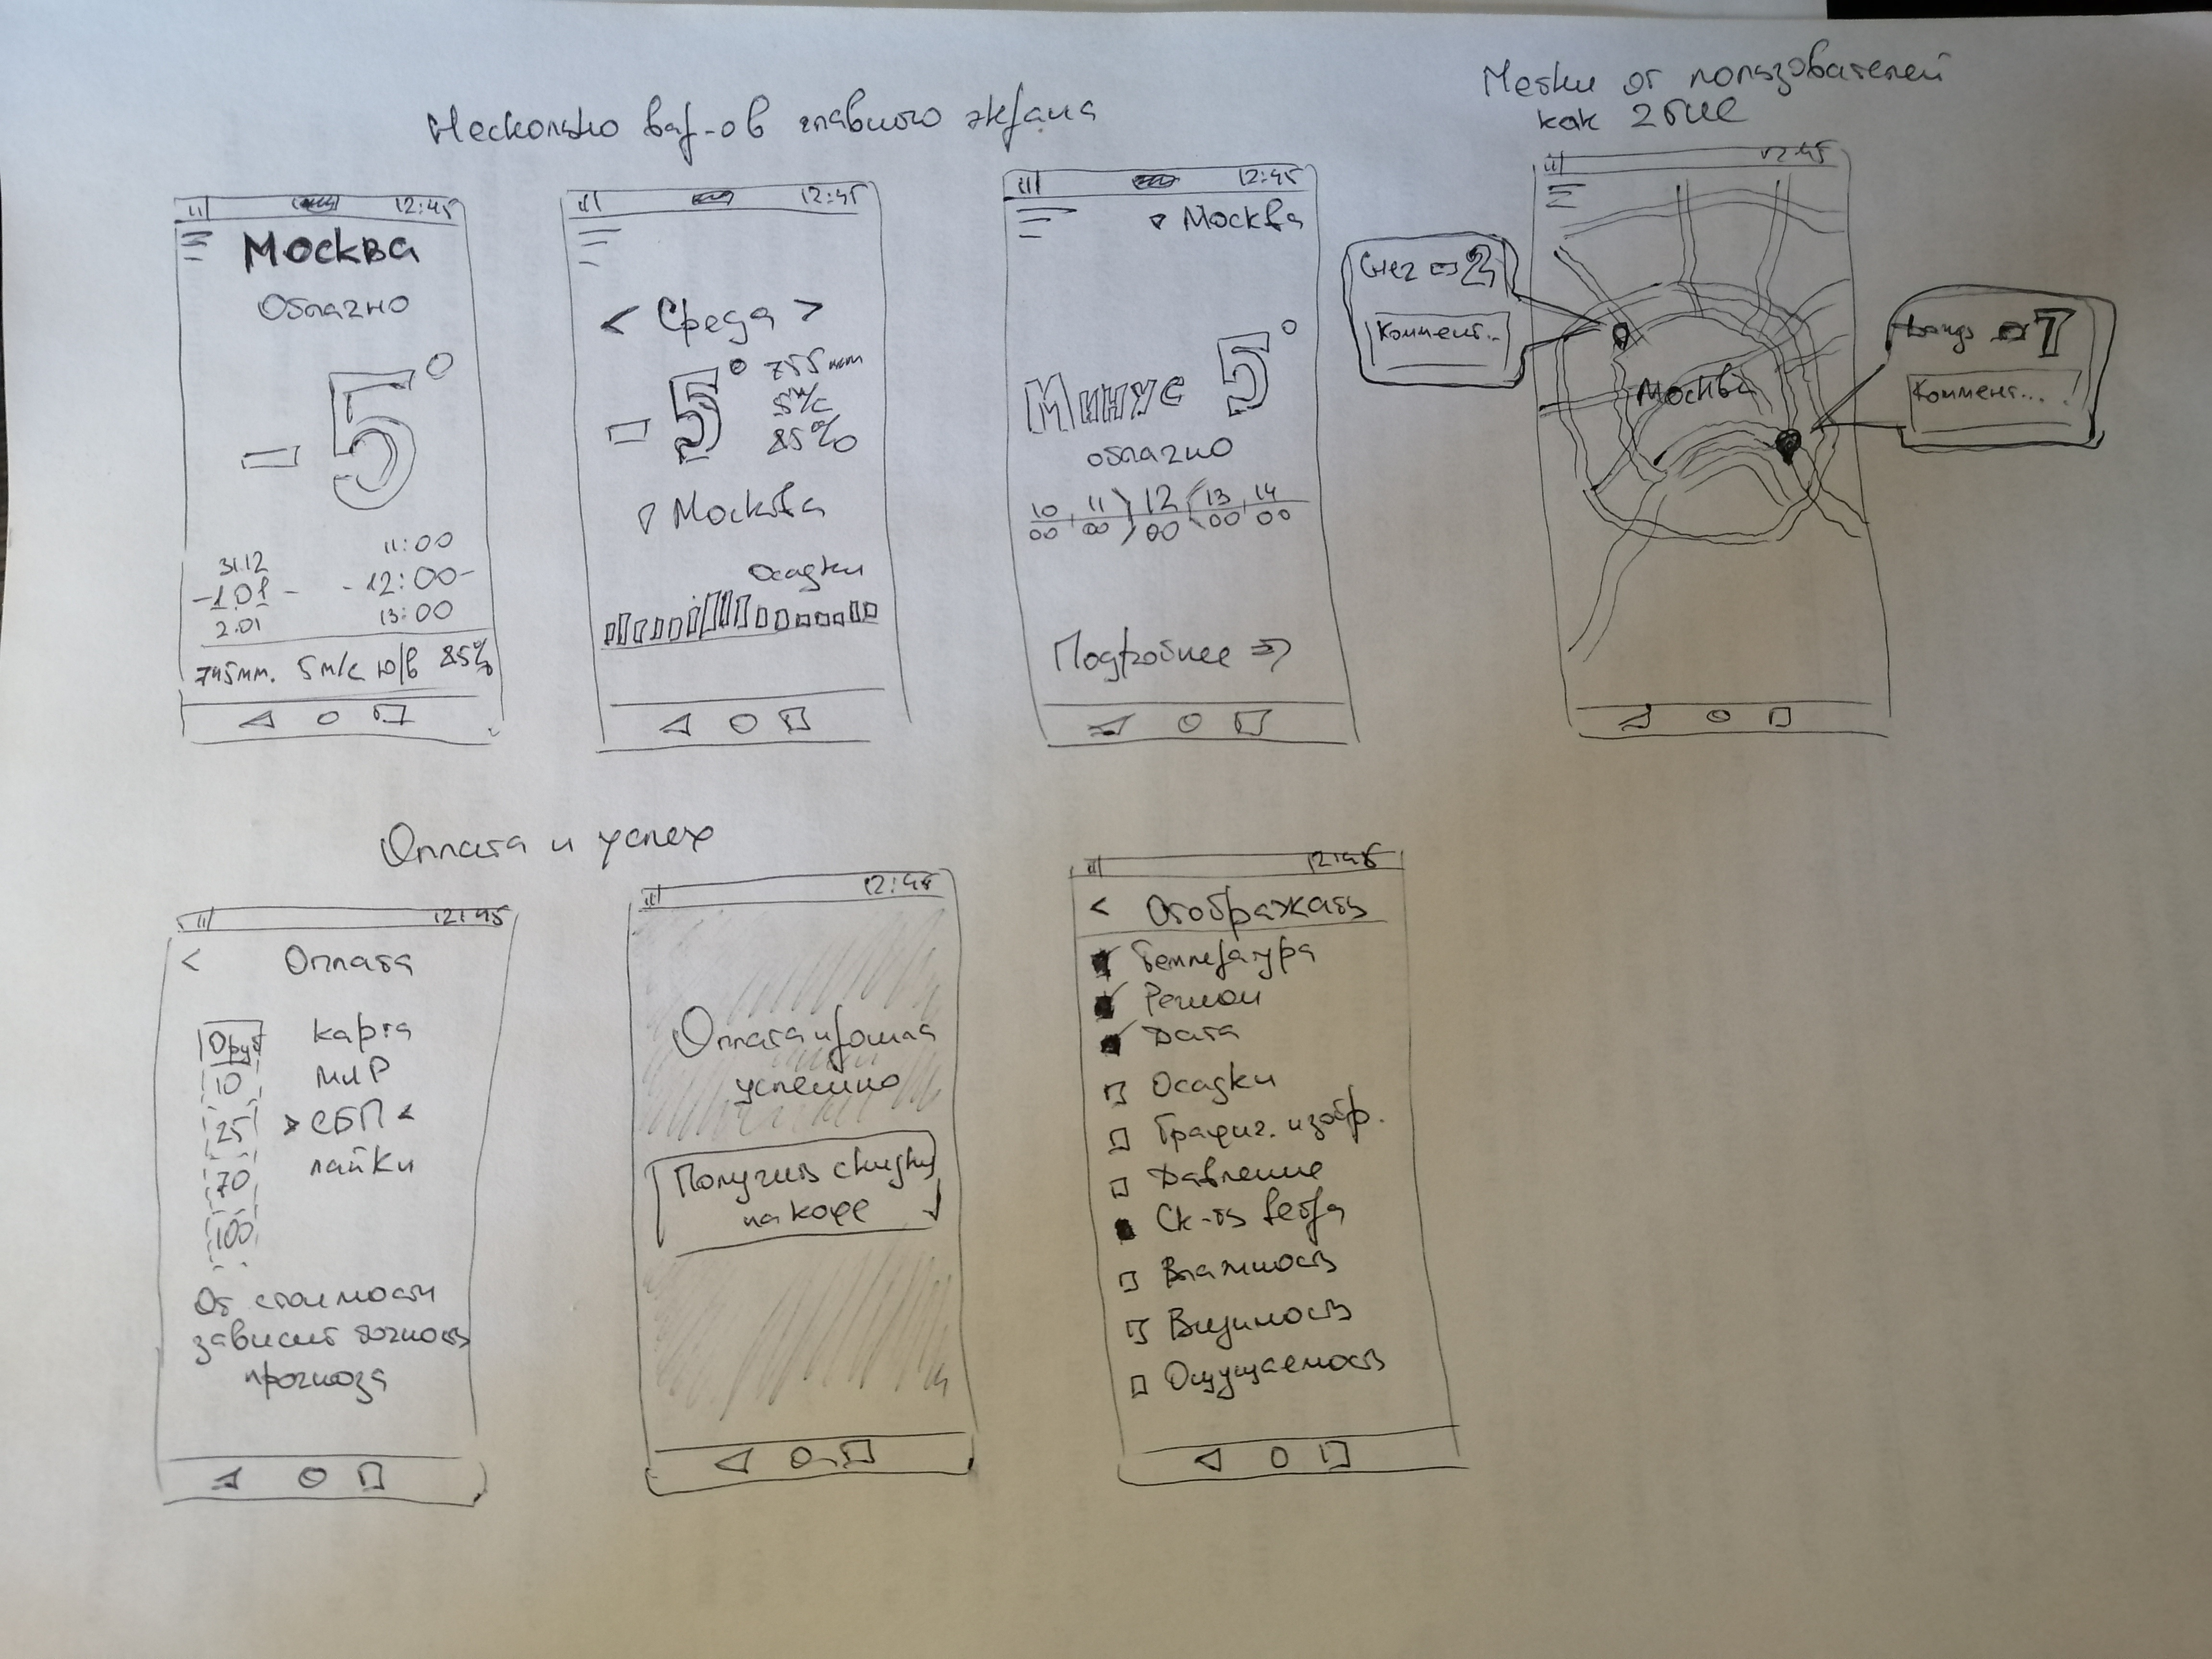 Несколько вар-ов главного экрана
Метки от пользователей
как 2бис
12:45
Москва
Облачно
-5°
31.12
-1.01-
2.01
11:00
-12:00-
13:00
745мм. 5м/с ю/в 85%
12:45
< Среда >
-5°
755мм
5м/с
85%
Москва
Осадки
12:45
Москва
Минус 5°
облачно
10 00 11 00 12 00 13 00 14 00
Подробнее ⇒
12:45
Снег -2
Коммент...
Москва
-7
Коммент...
Оплата и успех
12:45
< Оплата
0руб
10
25
70
100
карта
МИР
> СБП <
лайки
От стоимости
зависит точность
прогноза
12:45
Оплата прошла
успешно
Получить скидку
на кофе
12:45
< Отображать
Температура
Регион
Дата
Осадки
Графич. изобр.
Давление
Ск-ть ветра
Влажность
Видимость
Ощущаемость